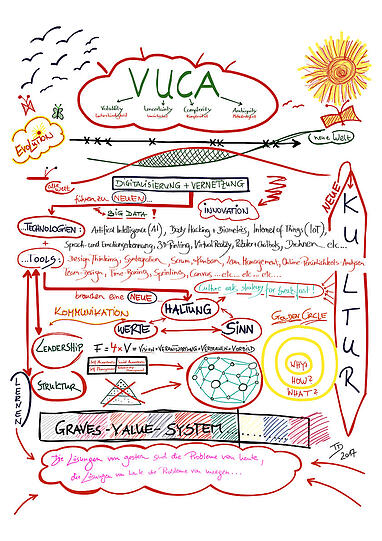 VUCA
Volatility Uncertainty Complexity Ambiguity
Unsicherheit Komplexität
Evolution
neue Welt
DIGITALISIERUNG + VERNETZUNG
führen zu NEUEN...
BIG DATA!
INNOVATION
NEUE
KULTUR
...TECHNOLOGIEN: Artificial Intelligence (AI), Body Hacking & Biomerics, Internet of Things (IoT),
+ Sprach- und Erkennung, 3D-Printing, Virtual Reality, Robots + Chatbots, Drohnen ... etc...
...TOOLS: Design Thinking, Scrum, Kanban, Lean Management, Online Persönlichkeits-Analysen
Lean Design, Time Boxing, Sprintlines, Canvas ... etc... etc... etc...
Culture eats strategy for breakfast!
brauchen eine NEUE
HALTUNG
KOMMUNIKATION
WERTE
SINN
GOLDEN CIRCLE
WHY?
HOW?
WHAT?
LEADERSHIP
F = 4 x V = VISION + VERANTWORTUNG + VERTRAUEN + VORBILD
STRUKTUR
LERNEN
GRAVES-VALUE-SYSTEM.......
2017
Die Lösungen von gestern sind die Probleme von heute,
die Lösungen von heute die Probleme von morgen...